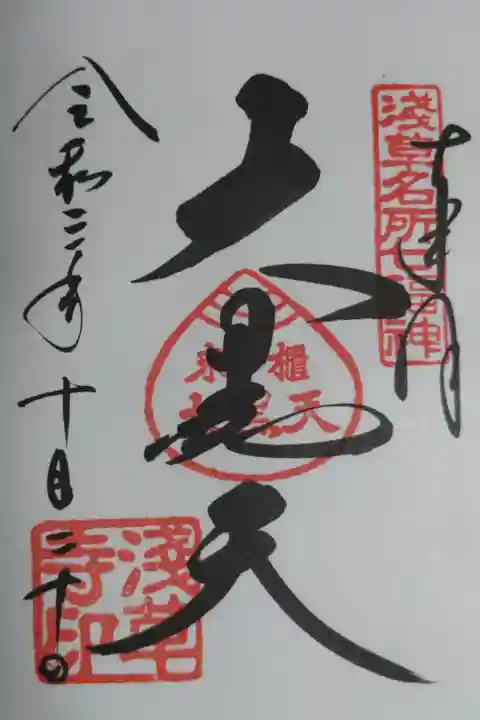 奉拝
淺草名所七福神
大黒天
令和二年十月二十日
淺草寺印